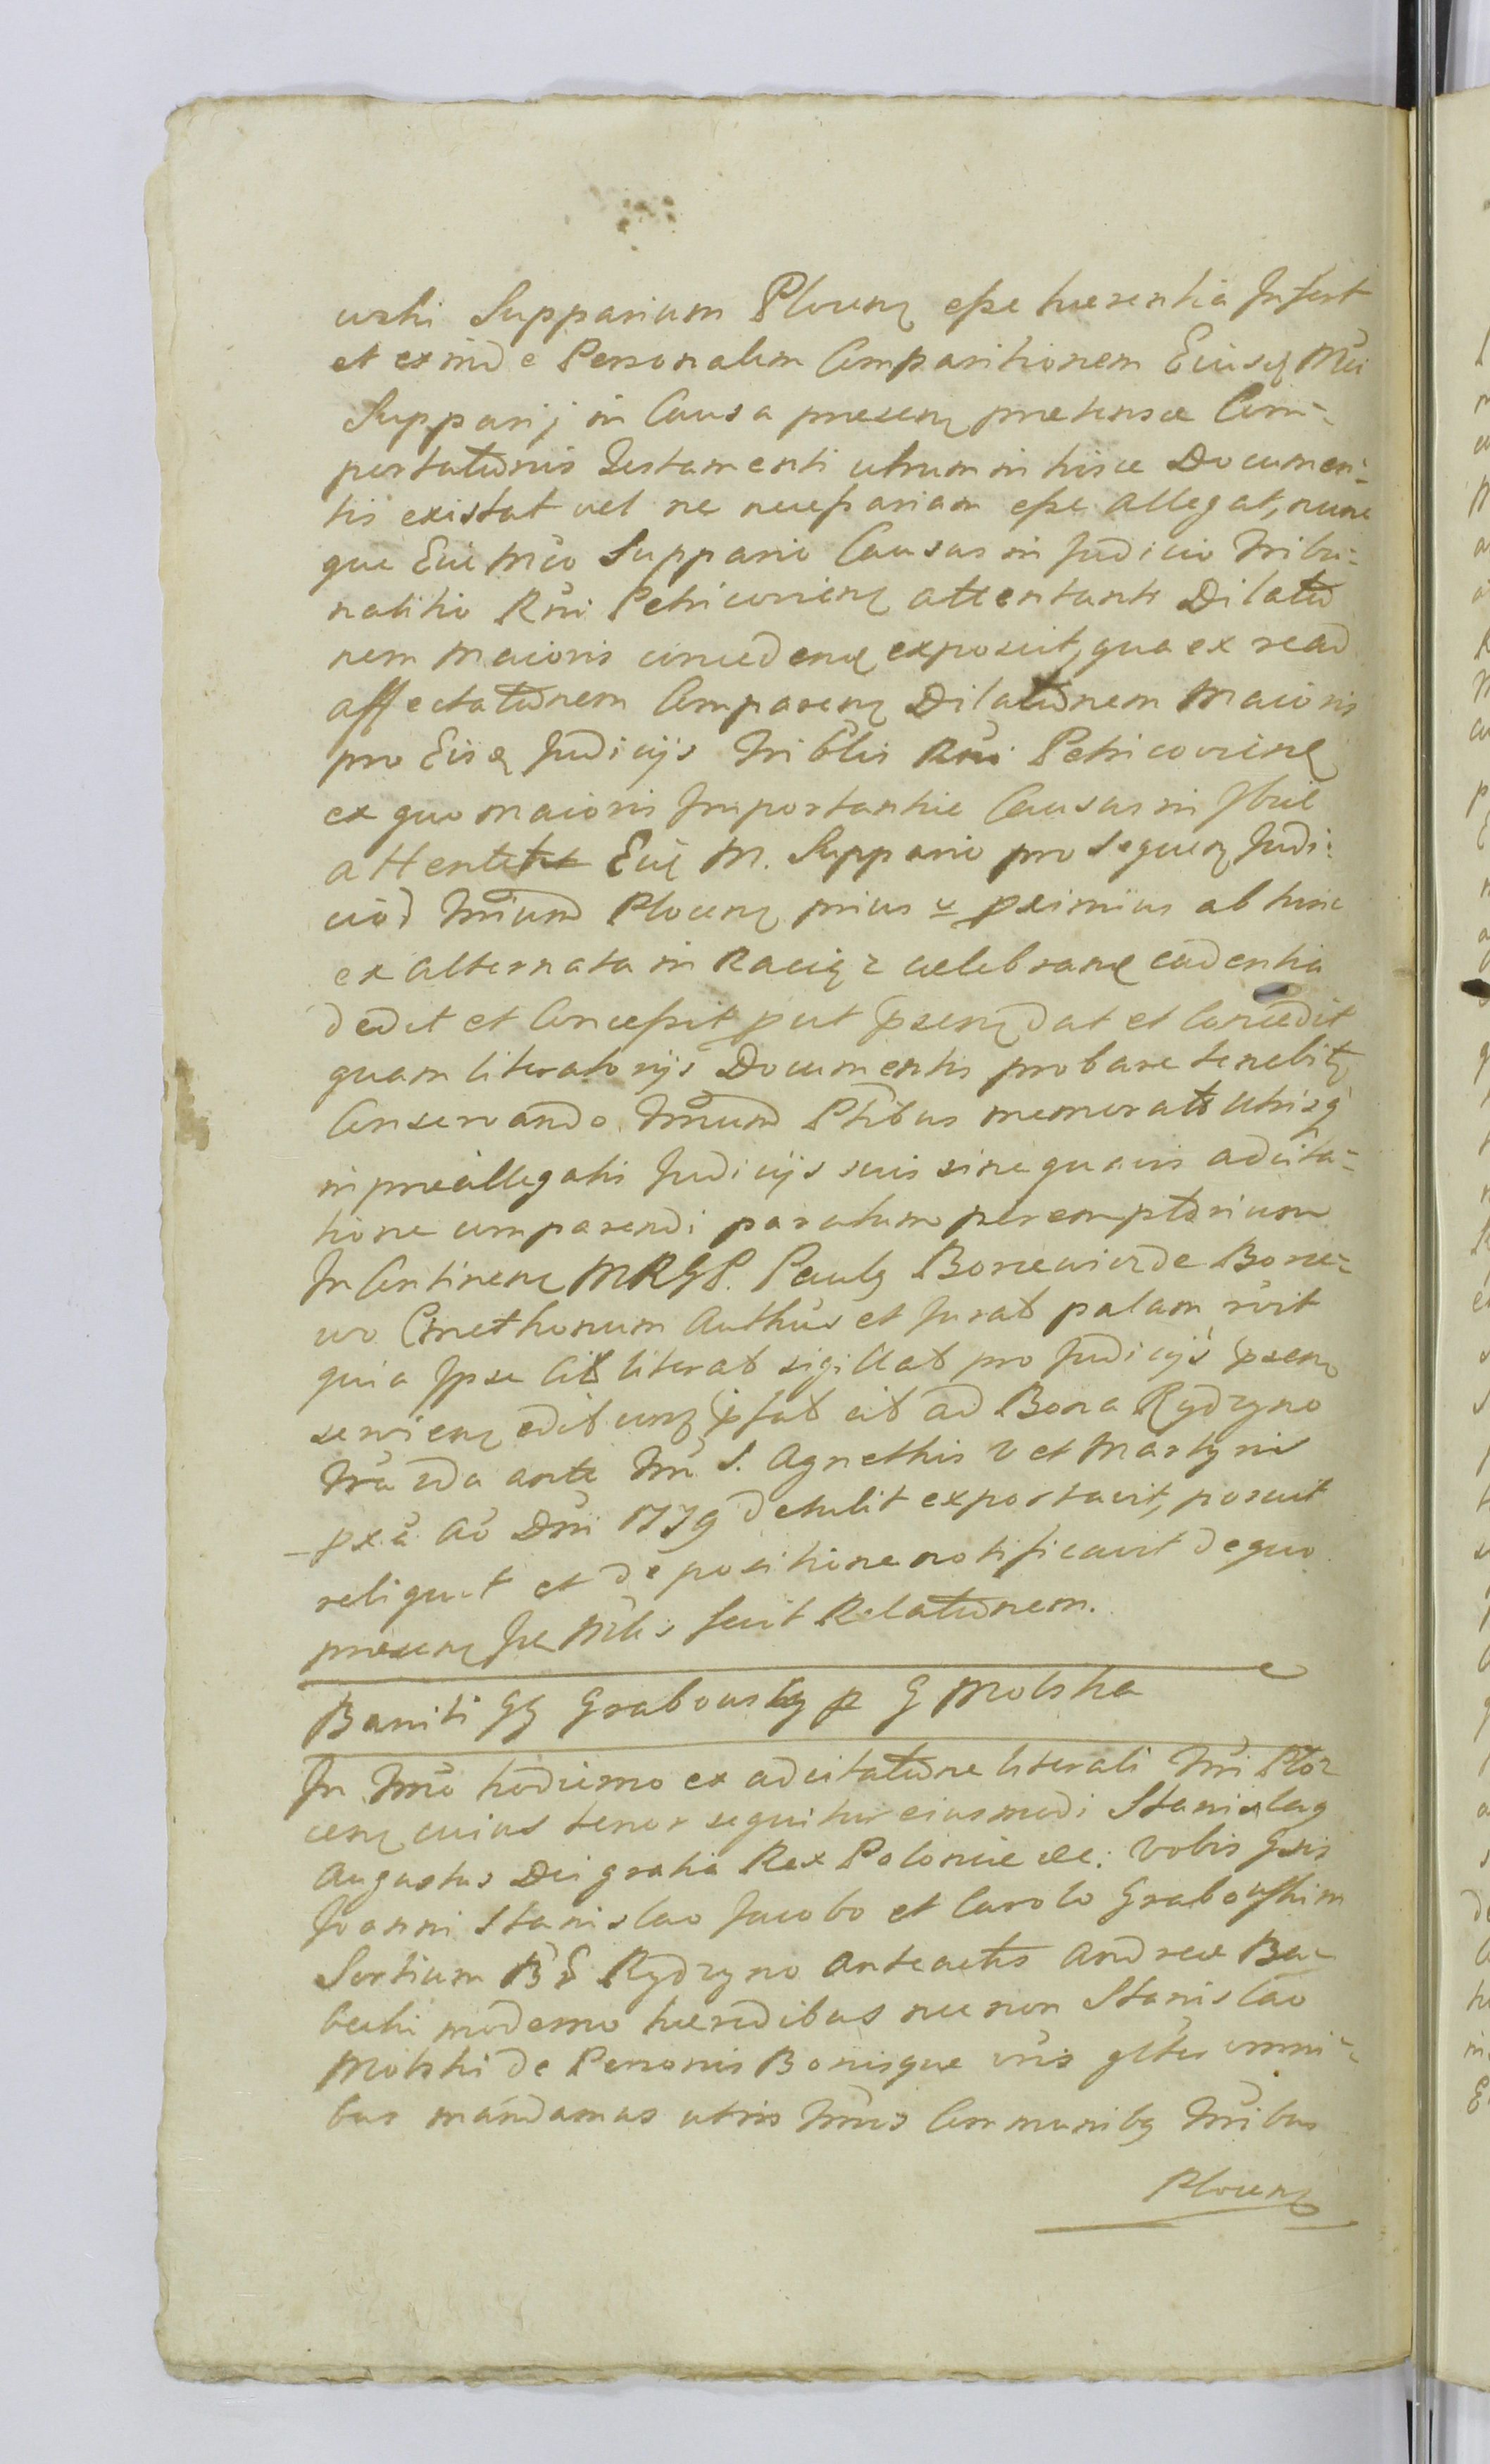 wski Supparium Plocens esse haerentia Infert
et exinde Personalem Comparitionem Eiusd Mci
Supparij in Causa presens pretensae Com=
portationis Testamenti utrum in hisce Documen=
tis existat vel ne necessariam esse allegat, nunc
que Eid Mco Suppario Causas in Judicio Tribu=
nalitio Rni Petricoviens attentanti Dilatio
nem maioris concedend exposuit, qua ex re ad
affectationem Comparens Dilationem maioris
pro Eisd Judicijs Triblis Rni Petricoviens
ex quo maioris Importantiae Causas in Ibid
attentat Eid M. Suppario pro sequen Judi=
ciod Trium Plocens prius proximius ab hinc
ex alternata in Raciąz celebrand cadentia
dedit et Concessit put psens dat et Concedit
quam literatorijs Documentis probare tenebit
Conservando Trium Ptibus memorat Utrisq
in praeallegatis Judicijs suis sine quavis adcita=
tione comparendi paratum peremptorium
In Continen MRGP. Paulg Boncewicz de Bonce=
wo Cmethonum Authus et Jurat palam rcvit
quia Ipse Cit literat sigillat pro Judicijs psens
serviens edit cum ipsat cit ad Bona Rydzyno
fra 2da ante fm S. Agnethis V et Martyris
pxa Ao Dni 1779 detulit exportavit, posuit
reliquit et de positione notificavit de quo
presens Ipe Mtlis fecit Relationem.
Baniti GG Grabowskg p G Molska
In Tmo hodierno ex adcitatione literali Tri Plo=
cens cuius tenor sequitur eiusmodi Stanislag
Augustus Dei gratia Rex Poloniae &c: Vobis Gsis
Joanni Stanislao Jacobo et Carolo Grabowskim
Sortium BB Rydzyno anteactis Andreae Ba=
beckki moderno haeredibus necnon Stanislao
Molski de Personis Bonisque vris gltis omni=
bus mandamus utris Tmis Communibg Tribus
Plocens